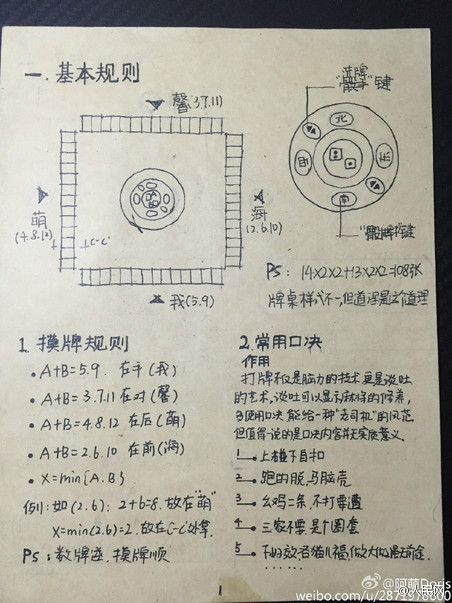 一.基本规则
馨(3.7.11)
萌
(4.8.12)
C-C'
海
(2.6.10)
我(5.9)
键
北
西
东
南
键
PS: 14×2×2+13×2×2=108张
牌桌样式不一,但道理是这个道理
1. 摸牌规则
• A+B=5.9 在手(我)
• A+B=3.7.11 在对(馨)
• A+B=4.8.12 在后(萌)
• A+B=2.6.10 在前(海)
• X=min{A.B}
例:如(2.6): 2+6=8.故在"萌"
X=min(2.6)=2.故在C-C'处拿.
PS: 数牌逆.摸牌顺
2.常用口决
作用
打牌不仅是脑力的技术更是谈吐
的艺术,谈吐可以显示麻样的修养,
多使用口决能给一种"老司机"的风范,
但值得一说的是口决内容并无实质意义.
1 上碰下自扣
2 跑的脱,马脑壳
3 幺鸡二条,不打要遭
4 三家不要,是个圈套
5
......
1
@阿萌Doris
人民网
weibo.com/u/2874976800